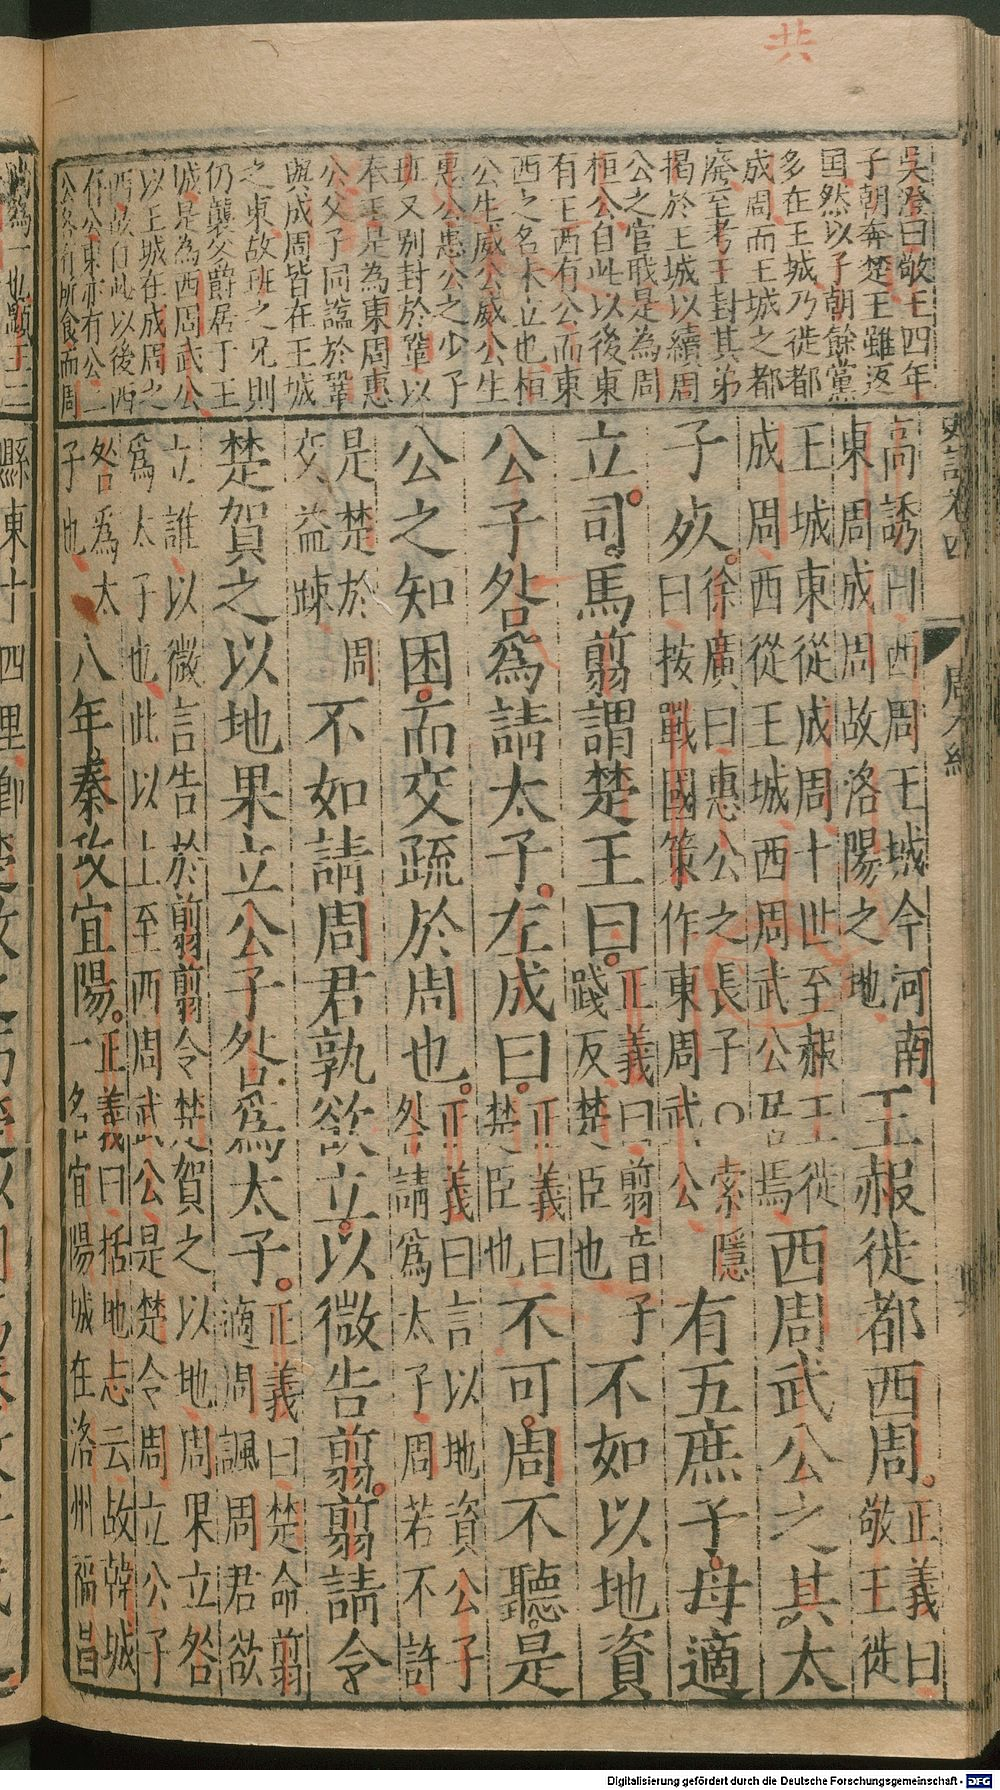 共
吳澄曰敬王四年
子朝奔楚王雖返
国然以子朝餘黨
多在王城乃徙都
成周而王城之都
廢至考王封其弟
揭於王城以續周
公之官職是為周
桓公自此以後東
有王西有公而東
西之名未立也桓
公生威公威公生
惠公惠公之少子
班又别封於鞏以
奉王是為東周惠
公父子同諡於鞏
與成周皆在王城
之東故班之兄則
仍襲父爵居于王
城是為西周武公
以王城在成周之
西故自此以後西
有公東亦有公二
公各有所食而周
尚為一也顯王二
史記卷四 周本紀
高誘曰西周王城今河南東周成周故洛陽之地王赧徙都西周。正義曰敬王徙
王城東從成周十世至赧王徙成周西從王城西周武公居焉西周武公之共太
子死。徐廣曰惠公之長子○索隱曰按戰國策作東周武公有五庶子。母適
立。司馬翦謂楚王曰。正義曰翦音子踐反楚臣也不如以地資
公子咎爲請太子。左成曰。正義曰楚臣也不可。周不聽。是
公之知困。而交疏於周也。正義曰言以地資公子咎請爲太子周若不許
是楚於周交益疎不如請周君孰欲立。以微告翦。翦請令
楚賀之以地果立公子咎爲太子。正義曰楚命翦適周諷周君欲
立誰以微言告於翦翦令楚賀之以地周果立咎爲太子也此以上至西周武公是楚令周立公子
咎爲太子也八年秦攻宜陽。正義曰括地志云故韓城一名宜陽城在洛州福昌
縣東十四里
Digitalisierung gefördert durch die Deutsche Forschungsgemeinschaft - DFG